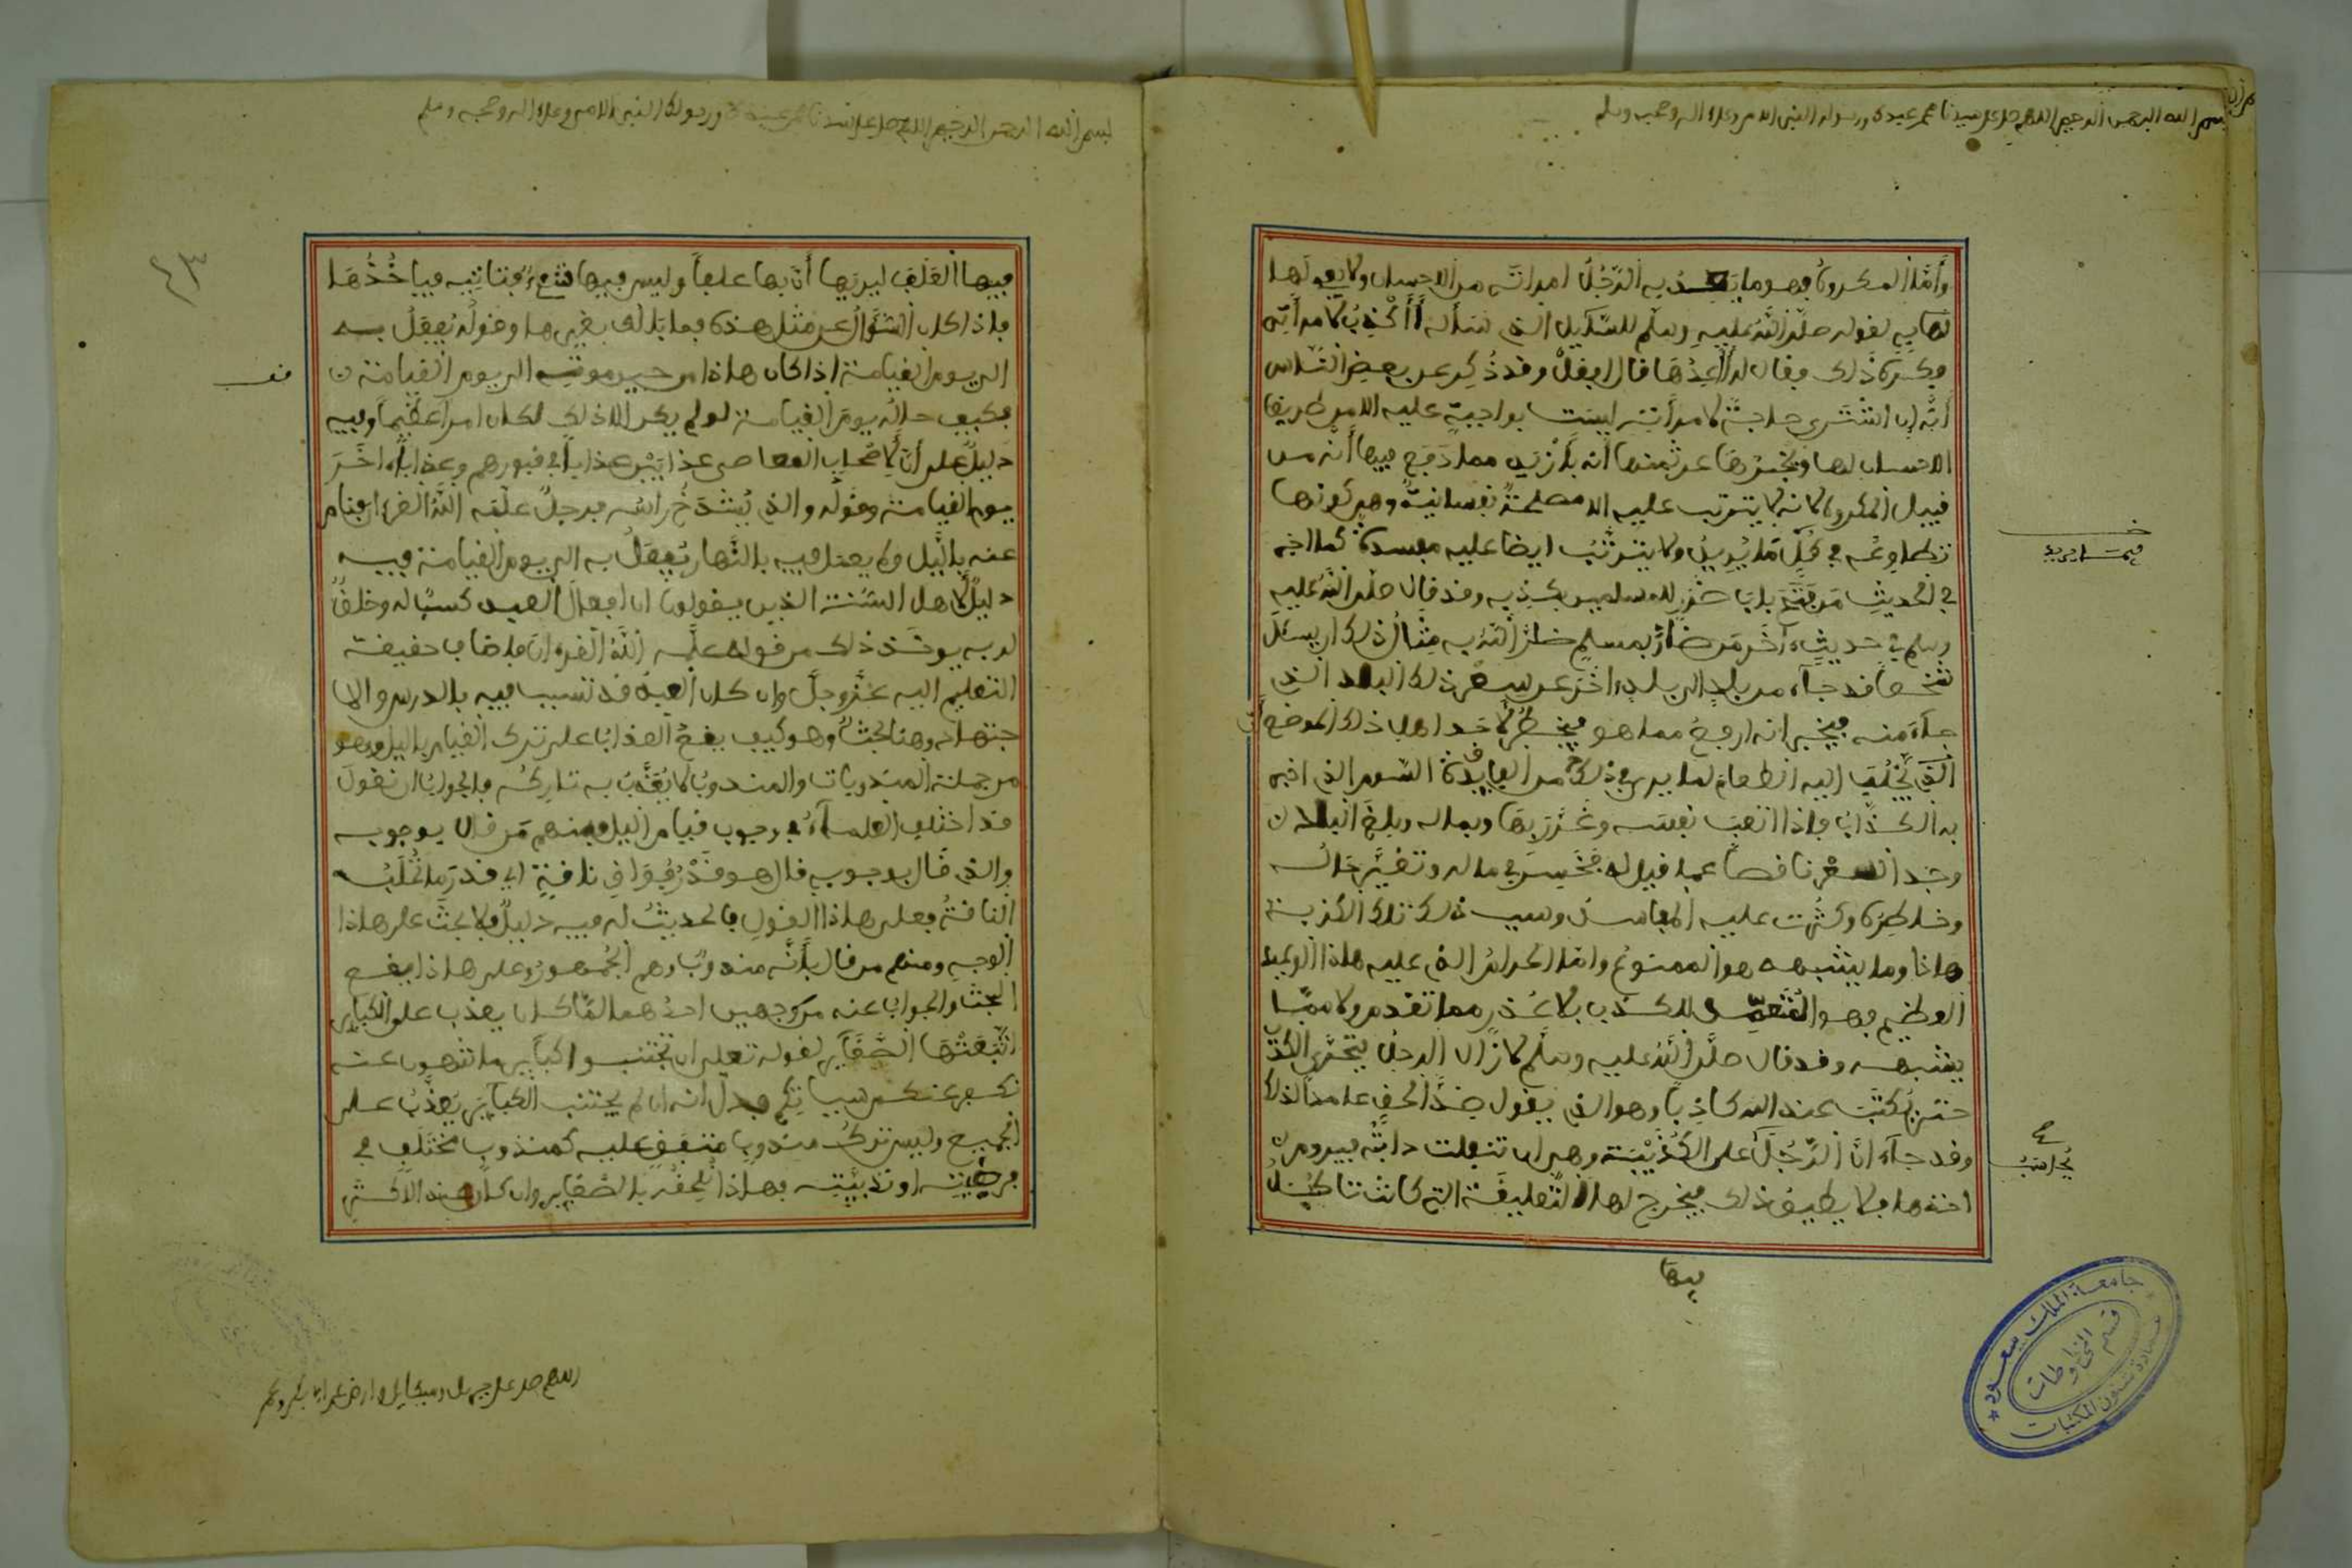 بسم الله الرحمن الرحيم اللهم صل على سيدنا محمد عبدك ورسولك النبي الامي وعلى اله وصحبه وسلم
وأما المكروه فهو ما يعد به الرجل امراته من الاحسان ولا يعولها
لقوله صلى الله عليه وسلم للسائل الذي سأله أأكذب لامرأتي
فكره ذلك فقال له أأعدها قال افعل وقد ذكر عن بعض الناس
أنه إن اشترى حاجة لامرأته ليست بواجبة عليه الا من طريق
الاحسان لها ويخبرها عن ثمنها أنه بأزيد مما دفع فيها أنه من
قبيل المكروه لانه لا يترتب عليه الا مصلحة نفسانية وهي كونها
تطاوعه في كل ما يريد ولا يترتب ايضا عليه مفسدة كما اخبر
في الحديث من فتح باب ضرر للمسلمين بكذبه وقد قال صلى الله عليه
وسلم في حديث ءاخر من ضار بمسلم ضار الله به مثال ذلك ان يسئل
شخصا قد جاء من بلد الى بلد ءاخر عن سعر ذلك البلد الذي
جاء منه فيخبر انه ارفع مما هو فيخطر لاحد اهل ذلك الموضع
الذي يجلب اليه الطعام لما يرى في ذلك من الفايدة السوم الذي اخبر
به الكذاب فاذا اتعب نفسه وغرر بها وبماله وبلغ البلاد
وجد السعر ناقصا عما قيل له فخسر في ماله وتغير حاله
وخاطره وكثرت عليه المفاسد وسبب ذلك تلك الكذبة
هاذا وما يشبهه هو الممنوع واما الحرام الذي عليه هاذا الوعيد
العظيم فهو المتعمد للكذب بلا عذر مما تقدم ولا مما
يشبهه وقد قال صلى الله عليه وسلم لا زال الرجل يتحرى الكذب
حتى يكتب عند الله كاذبا وهو الذي يقول ضد الحق عامدا لذلك
وقد جاء ان الرجل على الكذبة وهي ان تنفلت دابته فيروم
اخذها فلا يطيق ذلك فيخرج لها التعليقة التي كانت تاكل
فيها
بسم الله الرحمن الرحيم اللهم صل على سيدنا محمد عبدك ورسولك النبي الامي وعلى اله وصحبه وسلم
فيها العلف ليريها أن بها علفا وليس فيها شيء فتاتيه فياخذها
فاذا كان السؤال عن مثل هذه فما بالك بغيرها وقوله يفعل به
الى يوم القيامة اذا كان هاذا من حين موته الى يوم القيامة
فكيف حاله يوم القيامة لو لم يكن الا ذلك لكان امرا عظيما وفيه
دليل على أن لاصحاب المعاصي عذابين عذابا في قبورهم وعذابا ءاخر
يوم القيامة وقوله والذي يشدخ راسه فرجل علمه الله القرءان فنام
عنه بالليل ولم يعمل فيه بالنهار يفعل به الى يوم القيامة فيه
دليل لاهل السنة الذين يقولون ان افعال العبد كسب له وخلق
لربه يوخذ ذلك من قوله علمه الله القرءان فاضاف حقيقة
التعليم اليه عز وجل وان كان العبد قد تسبب فيه بالدرس والا
جتهاد وهنا بحث وهو كيف يقع العذاب على ترك القيام بالليل وهو
من جملة المندوبات والمندوب لا يعذب به تاركه فالجواب ان نقول
قد اختلف العلماء في وجوب قيام الليل فمنهم من قال بوجوبه
والذي قال بوجوبه قال هو قدر فواق ناقة اي قدر ما تحلب
الناقة فعلى هاذا القول فالحديث له فيه دليل فلا بحث على هاذا
الوجه ومنهم من قال بأنه مندوب وهم الجمهور وعلى هاذا يقع
البحث والجواب عنه من وجهين احدهما لما كان يعذب على الكباير
اتبعتها الصغاير لقوله تعلى ان تجتنبوا كباير ما تنهون عنه
نكفر عنكم سيئاتكم فدل انه ان لم يجتنب الكباير يعذب على
الجميع وليس ترك مندوب متفق عليه كمندوب مختلف في
فرضيته او ندبيته فهاذا يلحق بالصغاير وان كان عند الاكثر
اللهم صل على جبريل وميكايل وارض على ابي بكر وعمر
جامعة الملك سعود
قسم المخطوطات
عمادة شئون المكتبات